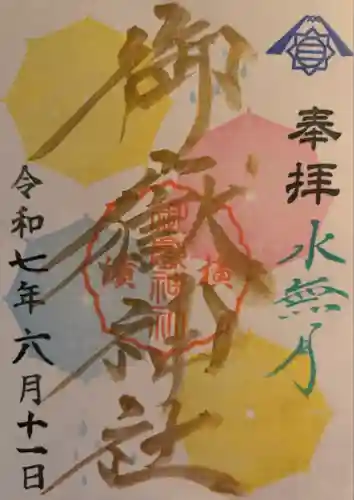 奉拝
水無月
御嶽神社
御嶽神社
横濱
令和七年六月十一日